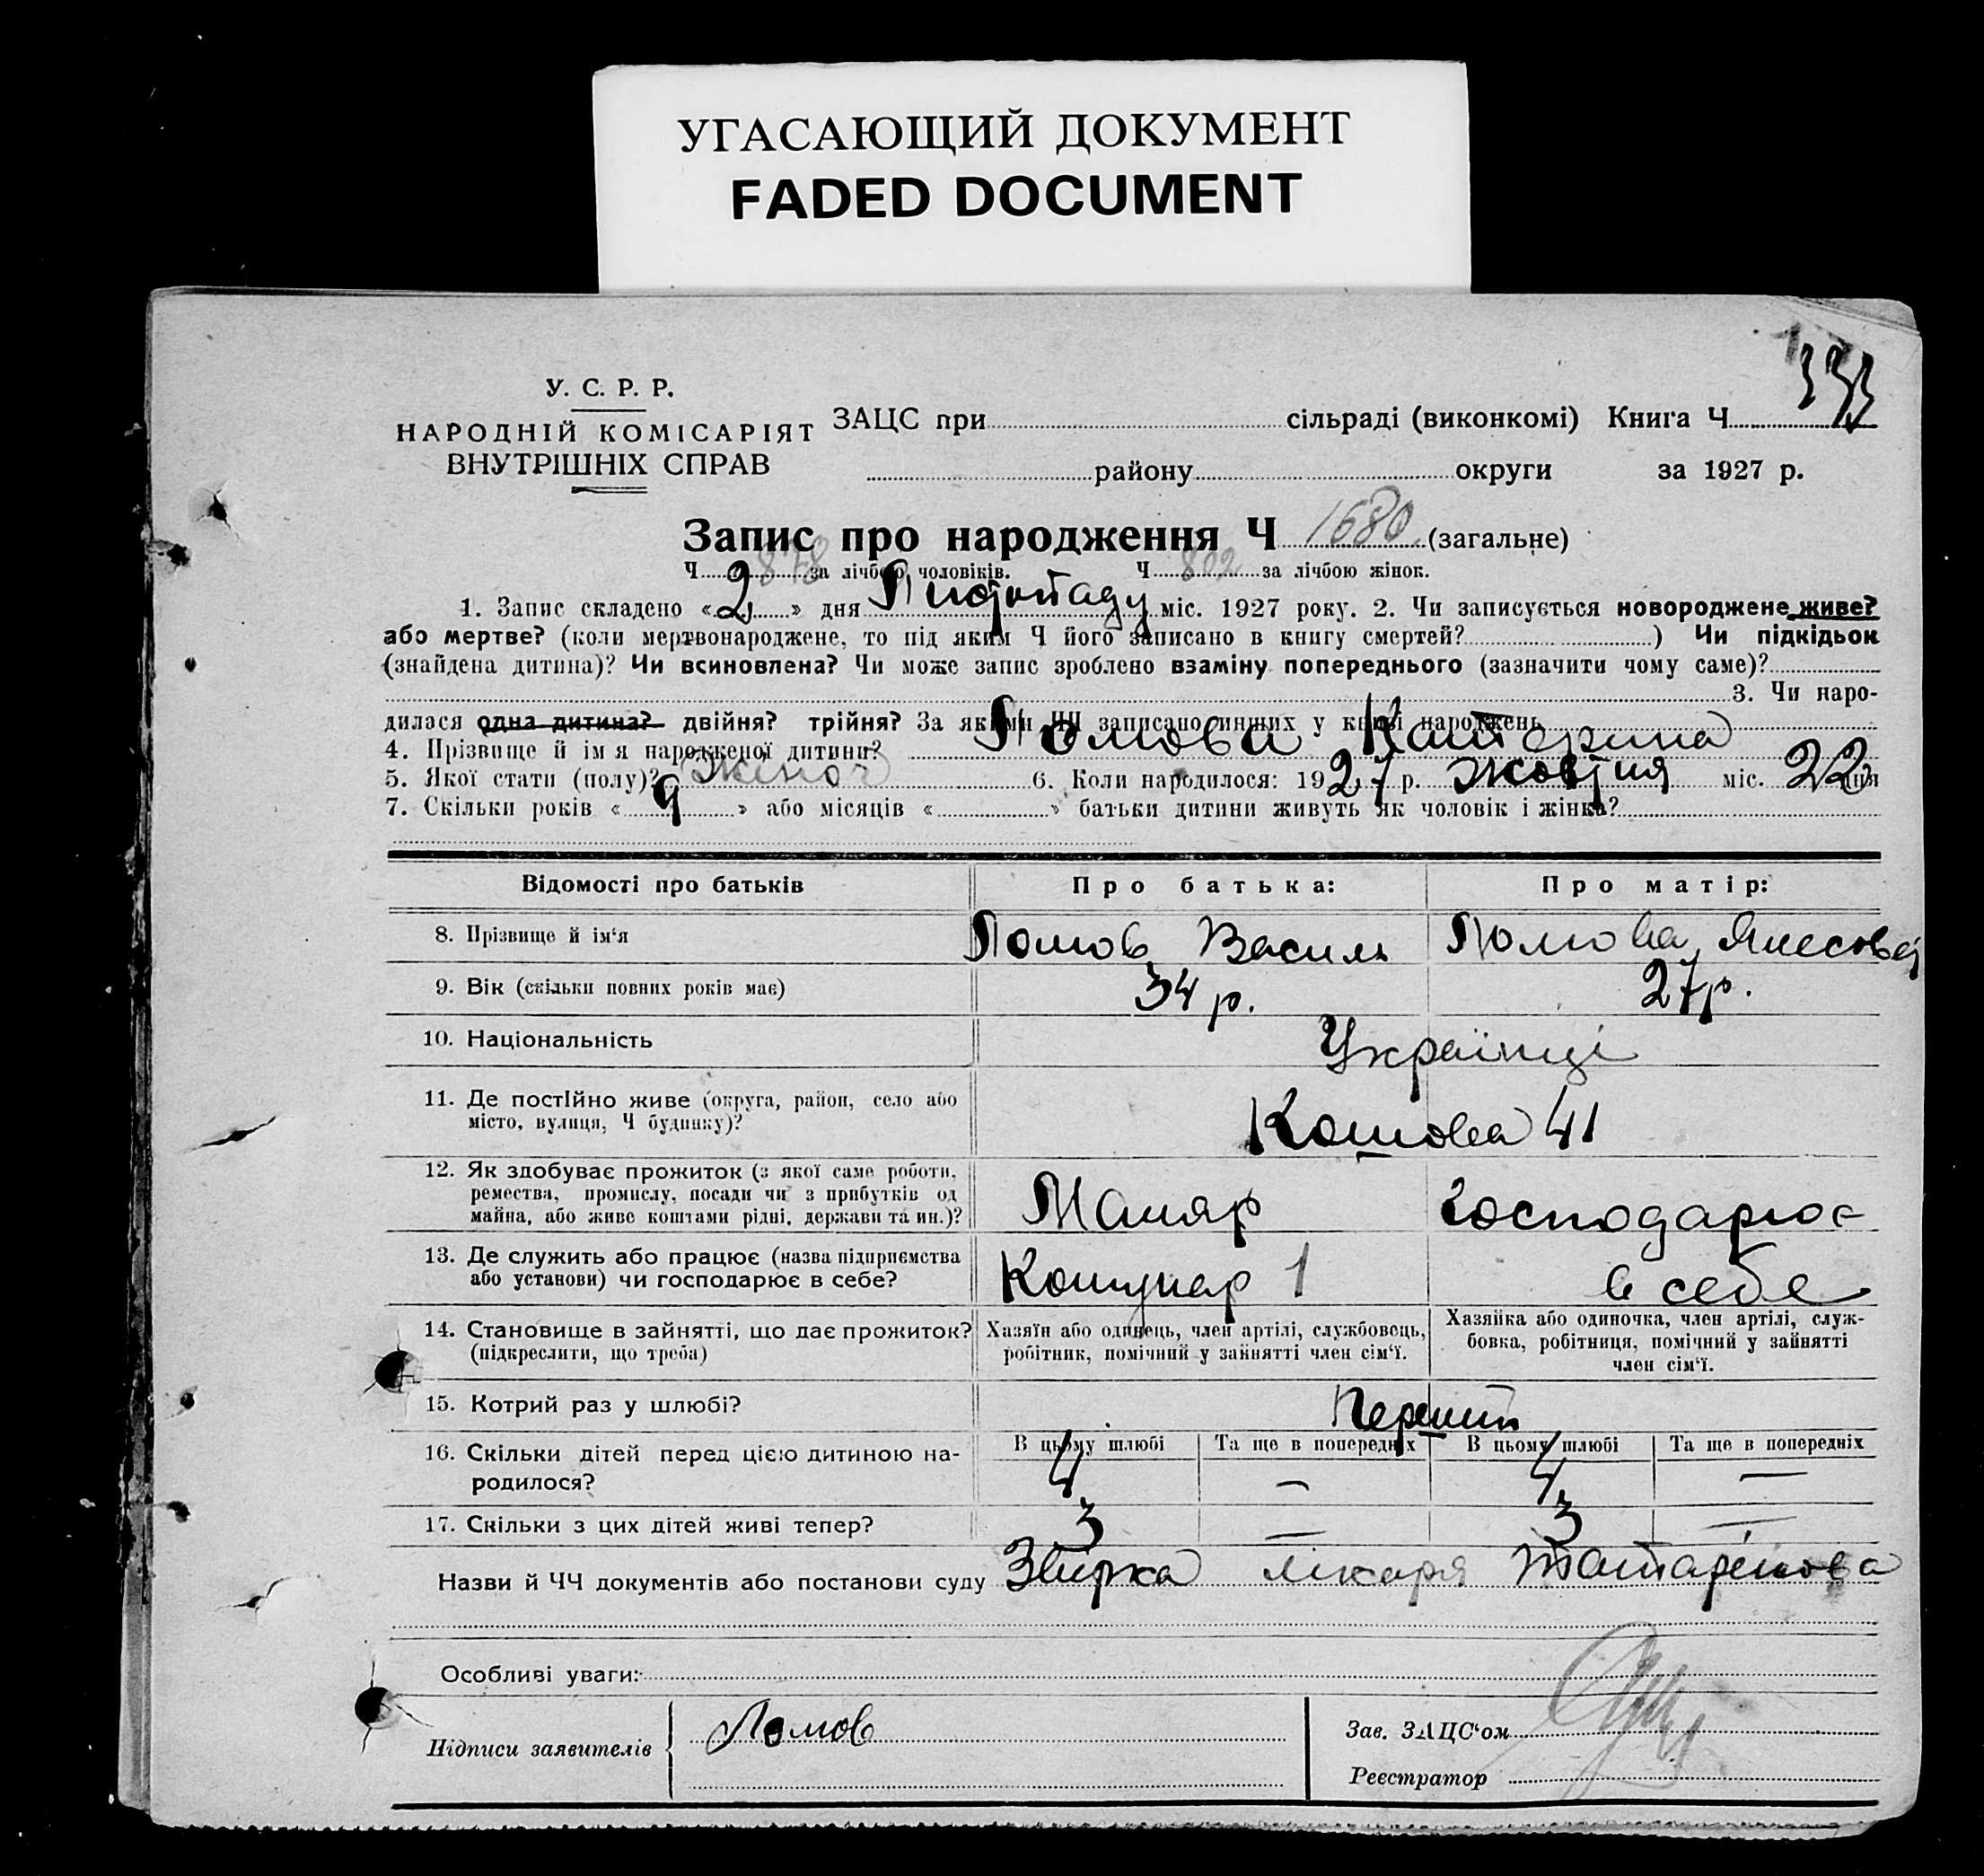 УГАСАЮЩИЙ ДОКУМЕНТ
FADED DOCUMENT
333
У. С. Р. Р.
НАРОДНІЙ КОМІСАРІЯТ
ВНУТРІШНІХ СПРАВ
ЗАЦС при сільраді (виконкомі) Книга Ч
району округи за 1927 р.
Запис про народження Ч 1680 (загальне)
Ч 878 за лічбою чоловіків. Ч 802 за лічбою жінок.
1. Запис складено «2» дня Листопаду міс. 1927 року. 2. Чи записується новороджене живе?
або мертве? (коли мертвонароджене, то під яким Ч його записано в книгу смертей? ) Чи підкідьок
(знайдена дитина)? Чи всиновлена? Чи може запис зроблено взаміну попереднього (зазначити чому саме)?
3. Чи наро-
дилася одна дитина? двійня? трійня? За якими ЧЧ записано инших у книзі народжень
4. Прізвище й ім я народженої дитини? Ломова Катерина
5. Якої стати (полу)? жіноч 6. Коли народилося: 1927 р. жовтня міс. 22 дня
7. Скільки років « 9 » або місяців « » батьки дитини живуть як чоловік і жінка?
Відомості про батьків Про батька: Про матір:
8. Прізвище й ім‘я Ломов Василь Ломова
9. Вік (скільки повних років має) 34 р. 27 р.
10. Національність Українці
11. Де постійно живе (округа, район, село або
місто, вулиця, Ч будинку)? Кошова 41
12. Як здобуває прожиток (з якої саме роботи,
ремества, промислу, посади чи з прибутків од
майна, або живе коштами рідні, держави та ин.)? Маляр господарює
13. Де служить або працює (назва підприємства
або установи) чи господарює в себе? 1 в себе
14. Становище в зайнятті, що дає прожиток?
(підкреслити, що треба)
Хазяїн або одинець, член артілі, службовець,
робітник, помічний у зайнятті член сім‘ї.
Хазяйка або одиночка, член артілі, служ-
бовка, робітниця, помічний у зайнятті
член сім‘ї.
15. Котрий раз у шлюбі? Перший
16. Скільки дітей перед цією дитиною на-
родилося?
В цьому шлюбі Та ще в попередніх В цьому шлюбі Та ще в попередніх
4 — 4 —
17. Скільки з цих дітей живі тепер? 3 — 3 —
Назви й ЧЧ документів або постанови суду лікаря
Особливі уваги:
Підписи заявителів Ломов
Зав. ЗАЦС‘ом
Реєстратор